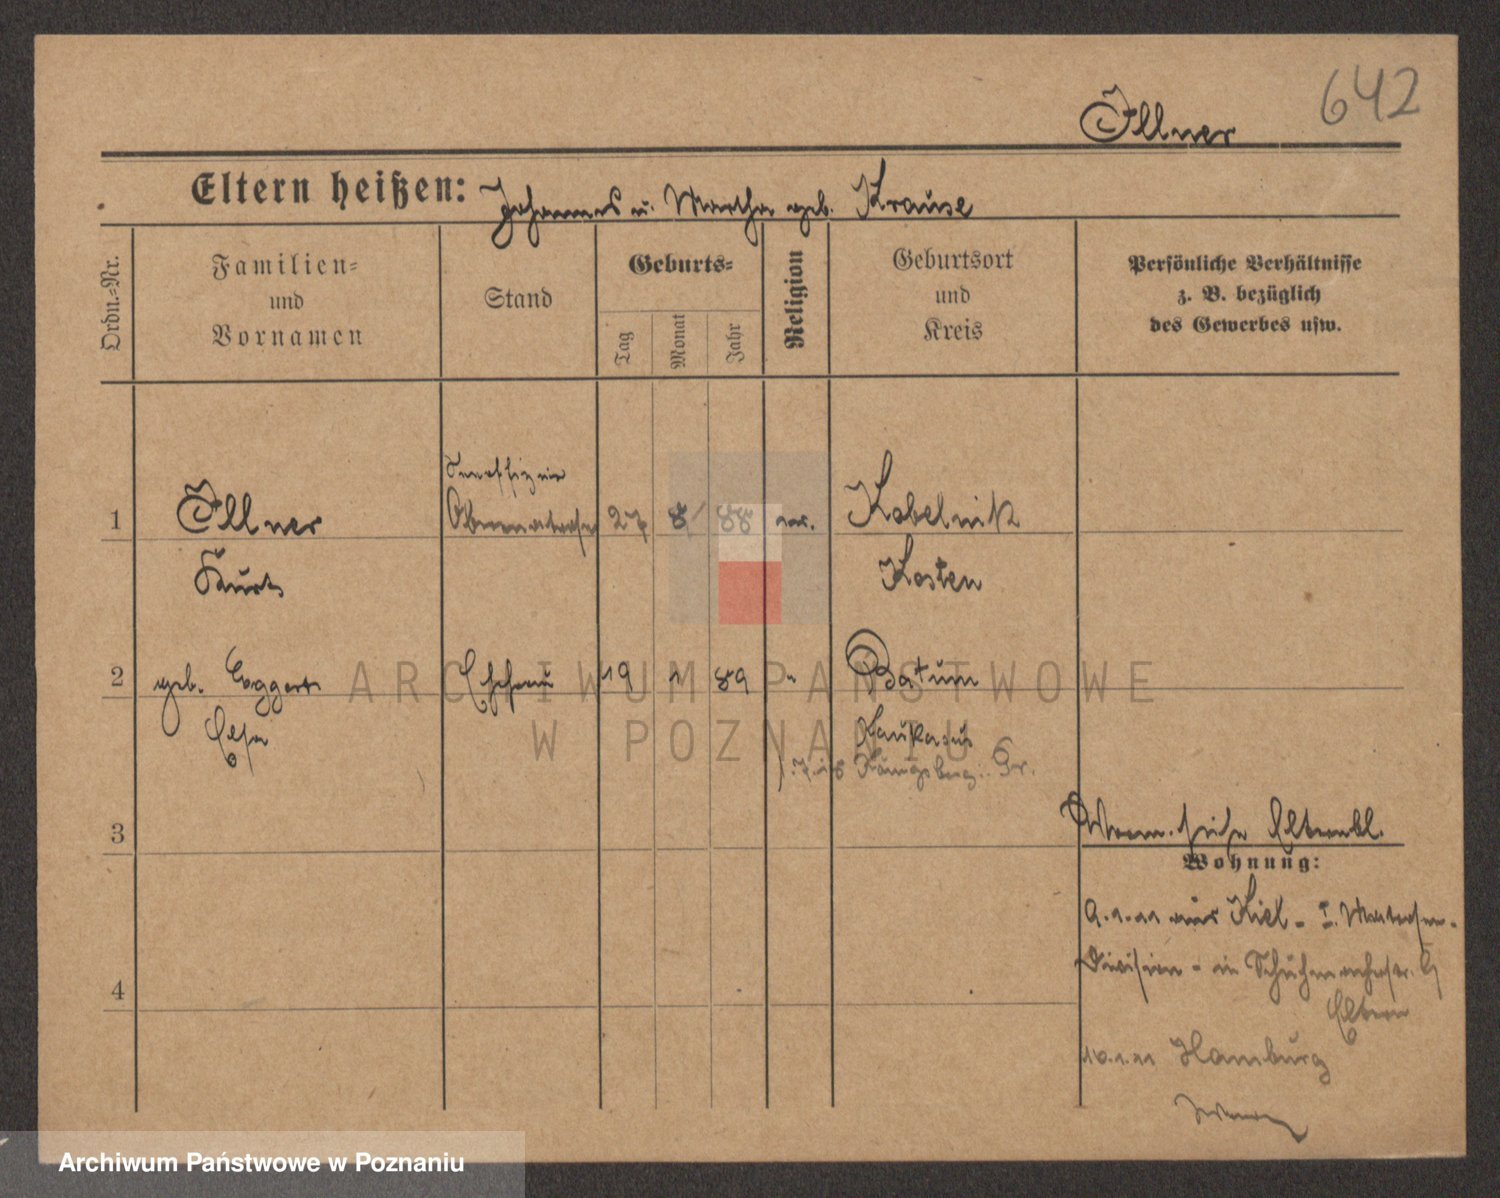 642
Illner
Eltern heißen: Johannes u. Martha geb. Krause
Ordn.-Nr.
Familien=
und
Vornamen
Stand
Geburts=
Tag
Monat
Jahr
Religion
Geburtsort
und
Kreis
Persönliche Verhältnisse
z. B. bezüglich
des Gewerbes usw.
1
Illner
Kurt
Obermatrose
27
8
88
ev.
Kobelnik
Kosten
2
geb. Eggert
Elsa
Ehefrau
19
1
89
"
Batum
Kaukasus
Königsberg i. Pr.
3
Verm. siehe Elternbl.
Wohnung:
9.1.11 aus Kiel - I. Matrosen-
Division - in Schuhmacherstr. 9
Eltern
4
10.1.11 Hamburg
ARCHIWUM PAŃSTWOWE
W POZNANIU
Archiwum Państwowe w Poznaniu